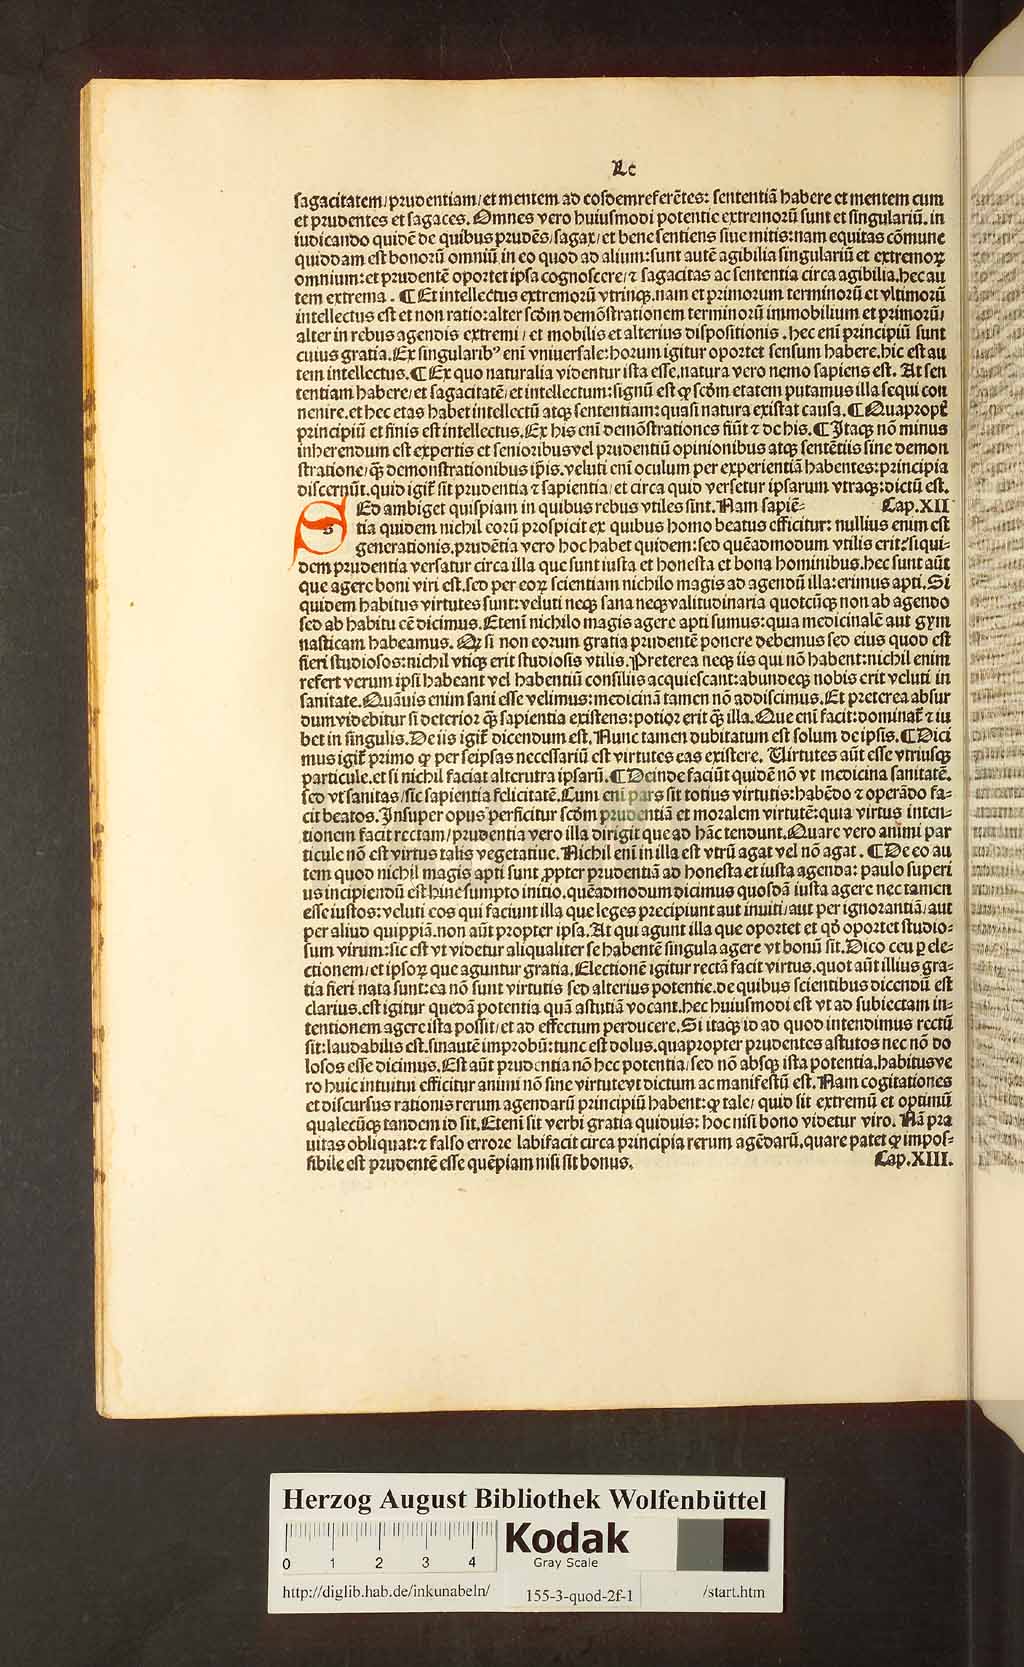 Lc
sagacitatem/prudentiam/et mentem ad eosdem referētes: sententiā habere et mentem cum
et prudentes et sagaces. Omnes vero huiusmodi potentie extremorū sunt et singulariū. in
iudicando quidē de quibus prudēs/sagax/et bene sentiens siue mitis: nam equitas cōmune
quiddam est bonorū omniū, in eo quod ad alium: sunt autē agibilia singulariū et extremoꝝ
omnium: et prudentē oportet ipsa cognoscere/⁊ sagacitas ac sententia circa agibilia. hec au
tem extrema. ¶ Et intellectus extremorū vtrinqꝫ. nam et primorum terminorū et vltimorū
intellectus est et non ratio: alter scd̄m demōstrationem terminorū immobilium et primorū/
alter in rebus agendis extremi/ et mobilis et alterius dispositionis. hec enī principiū sunt
cuius gratia. Ex singularibꝰ enī vniuersale: horum igitur oportet sensum habere. hic est au
tem intellectus. ¶ Ex quo naturalia videntur ista esse. natura vero nemo sapiens est. At sen
tentiam habere/et sagacitatē/et intellectum: signū est ꝙ scd̄m etatem putamus illa sequi con
uenire. et hec etas habet intellectū atqꝫ sententiam: quasi natura existat causa. ¶ Quapropt̄
principiū et finis est intellectus. Ex his enī demōstrationes fiūt ⁊ de his. ¶ Itaqꝫ nō minus
inherendum est expertis et senioribus vel prudentiū opinionibus atqꝫ sentētiis sine demon
stratione/ꝙ̄ demonstrationibus ip̄is. veluti enī oculum per experientiā habentes: principia
discernūt. quid igit̄ sit prudentia ⁊ sapientia/et circa quid versetur ipsarum vtraqꝫ: dictū est.
SEd ambiget quispiam in quibus rebus vtiles sint. Nam sapiē= Cap.XII
tia quidem nichil eorū prospicit ex quibus homo beatus efficitur: nullius enim est
generationis. prudētia vero hoc habet quidem: sed quēadmodum vtilis erit? si qui=
dem prudentia versatur circa illa que sunt iusta et honesta et bona hominibus. hec sunt aūt
que agere boni viri est. sed per eoꝝ scientiam nichilo magis ad agendū illa: erimus apti. Si
quidem habitus virtutes sunt: veluti neqꝫ sana neqꝫ valitudinaria quotcūqꝫ non ab agendo
sed ab habitu eē dicimus. Etenī nichilo magis agere apti sumus: quia medicinalē aut gym
nasticam habeamus. Qꝫ si non eorum gratia prudentē ponere debemus sed eius quod est
fieri studiosos: nichil vtiqꝫ erit studiosis vtilis. Preterea neqꝫ iis qui nō habent: nichil enim
refert verum ipsi habeant vel habentiū consiliis acquiescant: abundeqꝫ nobis erit veluti in
sanitate. Quāuis enim sani esse velimus: medicinā tamen nō addiscimus. Et preterea absur
dum videbitur si deterior ꝙ̄ sapientia existens: potior erit ꝙ̄ illa. Que enī facit: dominat̄ ⁊ iu
bet in singulis. De iis igit̄ dicendum est. Nunc tamen dubitatum est solum de ipsis. ¶ Dici
mus igit̄ primo ꝙ per seipsas necessariū est virtutes eas existere. Uirtutes aūt esse vtriusqꝫ
particule. et si nichil faciat alterutra ipsarū. ¶ Deinde faciūt quidē nō vt medicina sanitatē.
sed vt sanitas/sic sapientia felicitatē. Cum enī pars sit totius virtutis: habēdo ⁊ operādo fa=
cit beatos. Insuper opus perficitur scd̄m prudentiā et moralem virtutē: quia virtus inten=
tionem facit rectam/prudentia vero illa dirigit que ad hāc tendunt. Quare vero animi par
ticule nō est virtus talis vegetatiue. Nichil enī in illa est vtrū agat vel nō agat. ¶ De eo au
tem quod nichil magis apti sunt ꝓpter prudentiā ad honesta et iusta agenda: paulo superi
us incipiendū est hinc sumpto initio. quēadmodum dicimus quosdā iusta agere nec tamen
esse iustos: veluti eos qui faciunt illa que leges precipiunt aut inuiti/aut per ignorantiā/aut
per aliud quippiā. non aūt propter ipsa. At qui agunt illa que oportet et qd̄ oportet studio=
sum virum: sic est vt videtur aliqualiter se habentē singula agere vt bonū sit. Dico ceu ꝑ ele=
ctionem/et ipsoꝝ que aguntur gratia. Electionē igitur rectā facit virtus. quot aūt illius gra=
tia fieri nata sunt: ea nō sunt virtutis sed alterius potentie. de quibus scientibus dicendū est
clarius. est igitur quedā potentia quā astutiā vocant. hec huiusmodi est vt ad subiectam in=
tentionem agere ista possit/et ad effectum perducere. Si itaqꝫ id ad quod intendimus rectū
sit: laudabilis est. sin autē improbū: tunc est dolus. quapropter prudentes astutos nec nō do
losos esse dicimus. Est aūt prudentia nō hec potentia/sed nō absqꝫ ista potentia. habitus ve
ro huic intuitui efficitur animi nō sine virtute vt dictum ac manifestū est. Nam cogitationes
et discursus rationis rerum agendarū principiū habent: ꝙ tale/ quid sit extremū et optimū
qualecūqꝫ tandem id sit. Etenī sit verbi gratia quiduis: hoc nisi bono videtur viro. Nā pra
uitas obliquat: ⁊ falso errore labifacit circa principia rerum agēdarū. quare patet ꝙ impos=
sibile est prudentē esse quēpiam nisi sit bonus. Cap.XIII.
Herzog August Bibliothek Wolfenbüttel
0 1 2 3 4
Kodak
Gray Scale
http://diglib.hab.de/inkunabeln/ 155-3-quod-2f-1 /start.htm